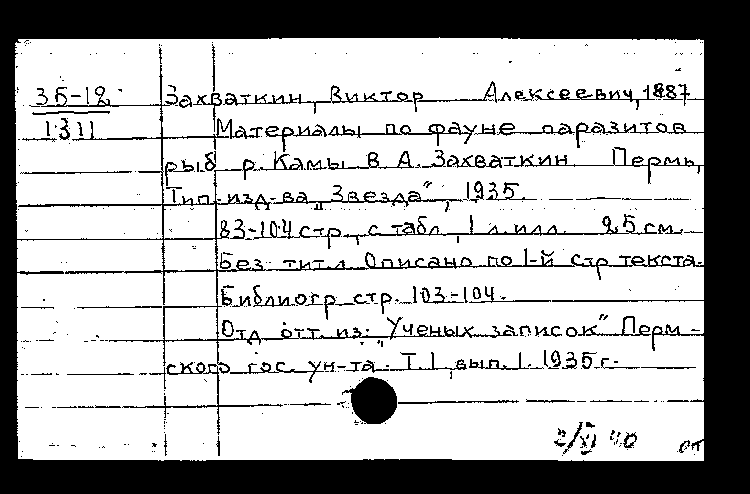 35-12 Захваткин, Виктор Алексеевич, 1887
1311 Материалы по фауне паразитов
рыб р. Камы В. А. Захваткин. Пермь,
Тип. изд-ва "Звезда", 1935.
83-104 стр., с табл., 1 л. илл. 25 см.
Без тит.л. Описано по 1-й стр текста.
Библиогр стр. 103-104.
Отд отт. из: "Ученых записок" Перм-
ского гос. ун-та. Т. 1, вып. 1. 1935 г.
2/XI 40 от